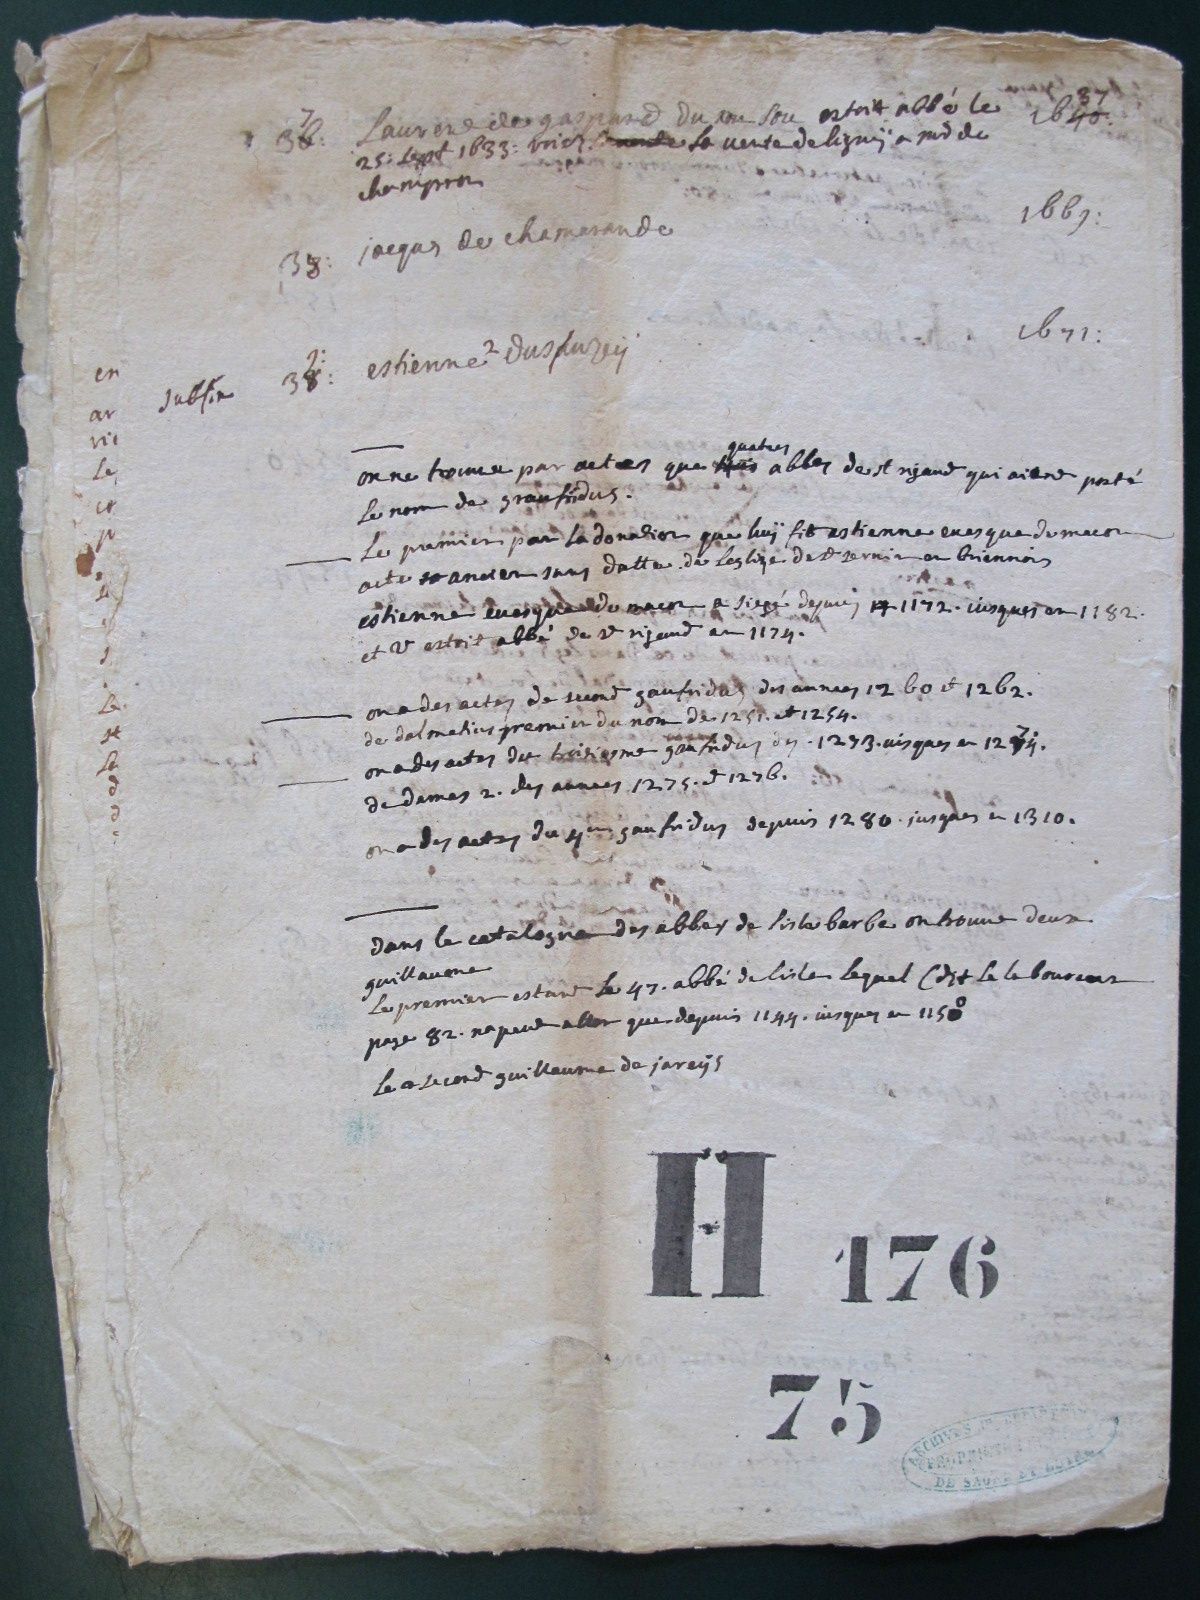 37: Laurent de gaspard du son estoit abbé le 1637
25: sept 1633: la vente de ligny a mr de
champron
38: jacques de chamarande 1661:
Jublin 38: estienne 2 dusluzeÿ 1671:
on ne trouve par actes que quatres abbes de st rigaud qui aient porté
le nom de gaufridus.
Le premier par la donation que luÿ fit estienne evesque de macon
acte ancien sans datte de leglize de st sernin en briennois
estienne evesque de macon a siegé depuis 1172. iusques en 1182.
et estoit abbé de st rigaud en 1174.
on a des actes de second gaufridus des annees 1260 et 1262.
de dalmatius premier du nom de 1251. et 1254.
on a des actes du troisiesme gaufridus des 1273. iusques en 1274.
de damas 2. des annees 1275. et 1276.
on a des actes du 4me gaufridus depuis 1280. jusques en 1310.
dans le catalogue des abbes de lisle barbe on trouve deux
guillaume
Le premier estant le 47. abbé de lisle lequel (dit le laboureur
page 82. ne peut aller que depuis 1144. iusques en 1150
Le second guillaume de jareÿs
H 176
75
ARCHIVES DU DÉPARTEMENT
DE SAÔNE ET LOIRE
en
ar
vii
Le